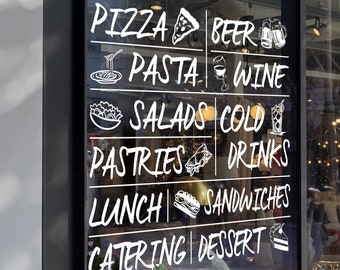 PIZZA BEER
PASTA WINE
SALADS COLD
PASTRIES DRINKS
LUNCH SANDWICHES
CATERING DESSERT